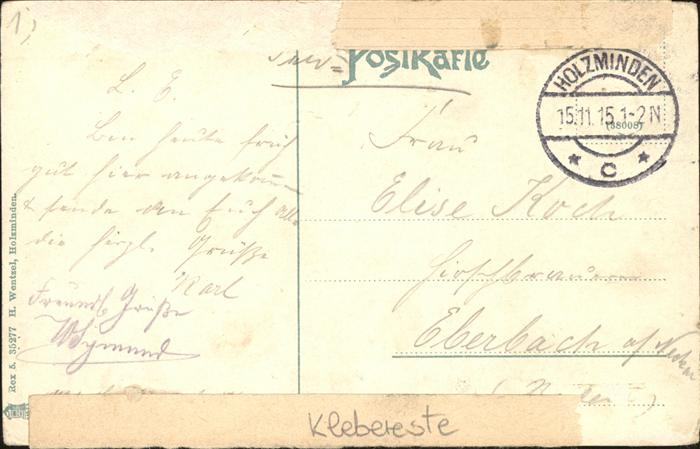 1)
Postkarte
HOLZMINDEN
15.11.15.1-2N
(38008)
* C *
L. E.
Ben heute früh
gut hier angekommen
& sende an Euch Alle
die herzl. Grüße
Karl
Freundl. Grüße
Frau
Elise Koch
Hirschbrauerei
Eberbach a/ Neckar
Rex 5. 35277 H. Wentzel, Holzminden.
Klebereste